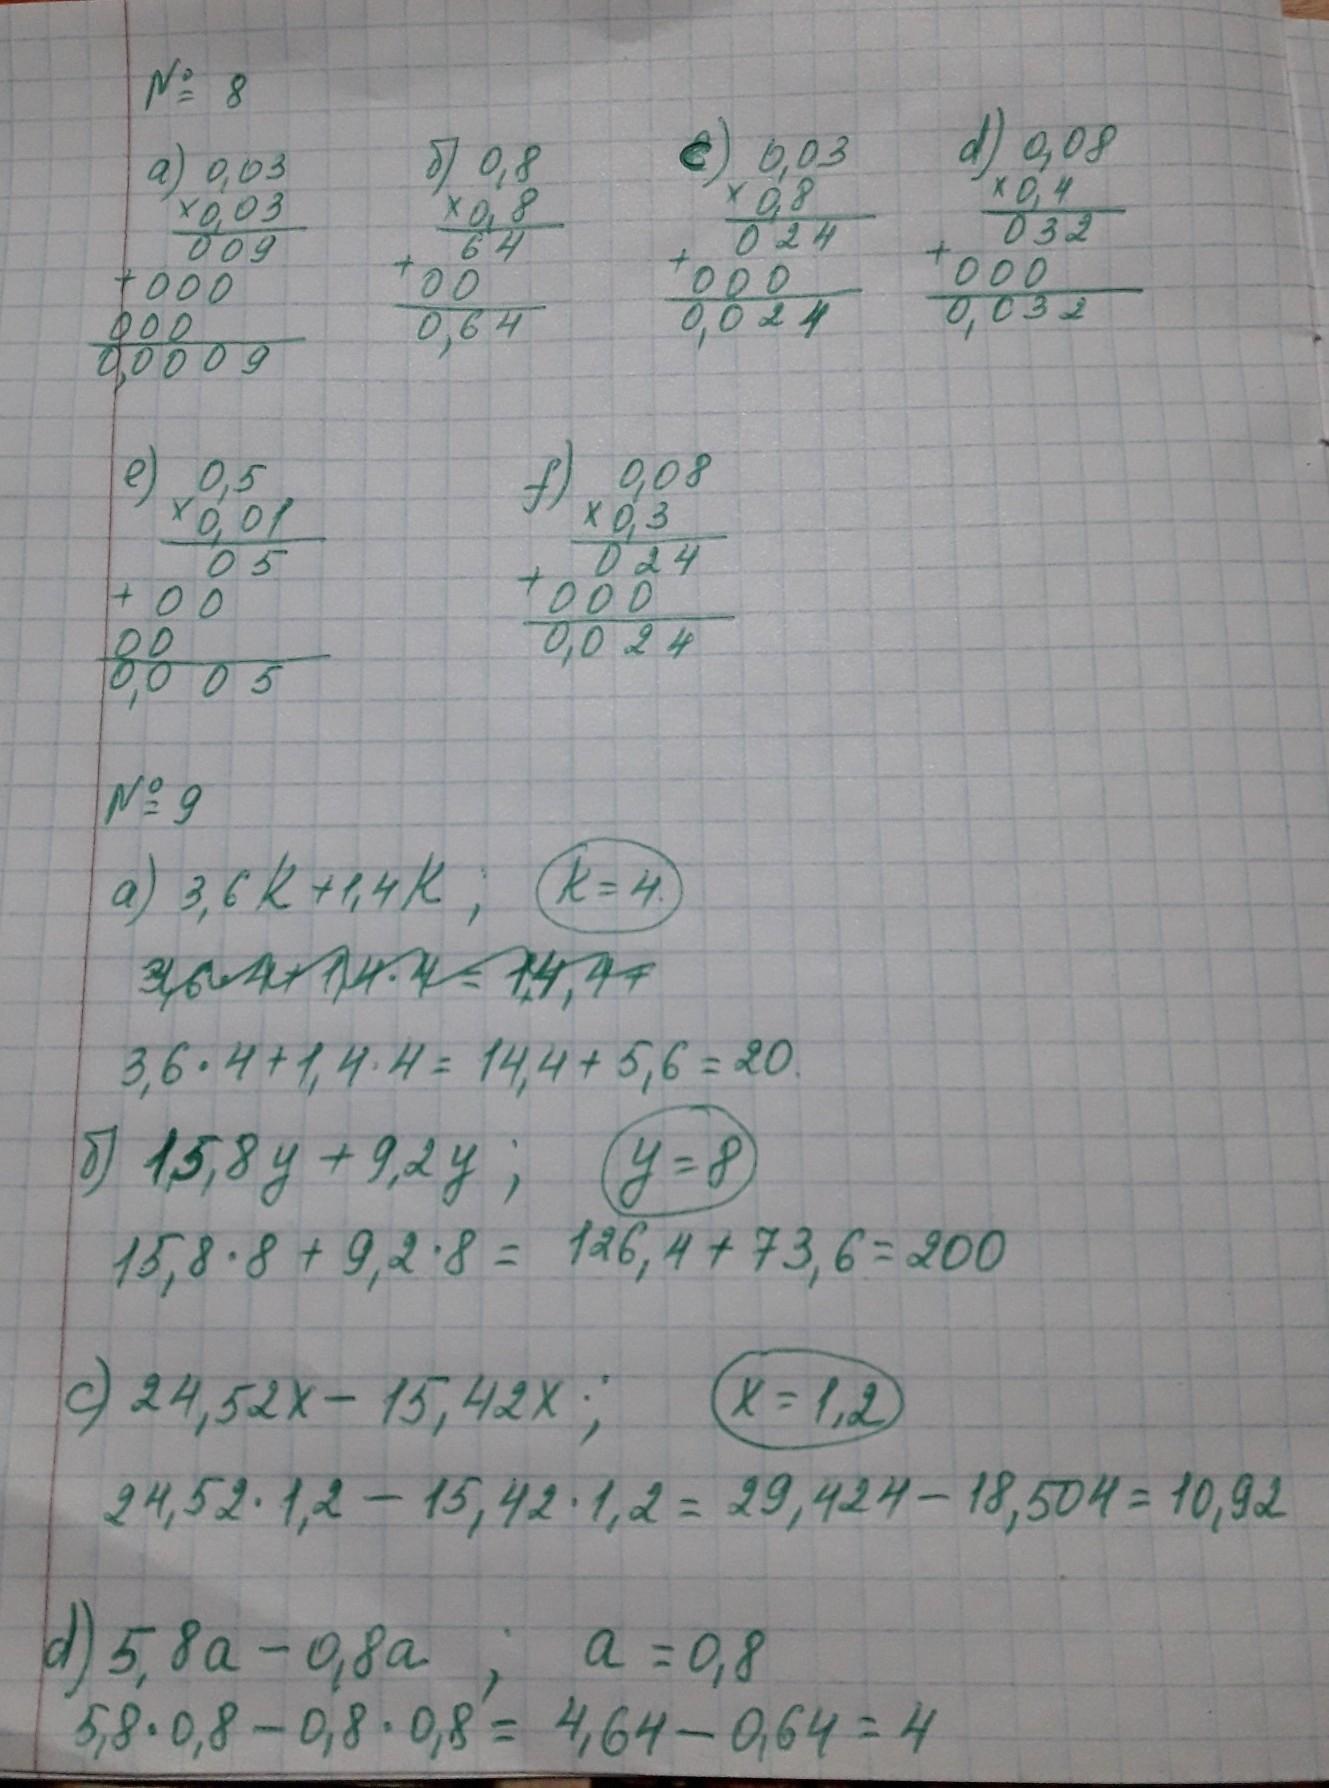 № 8
а) 0,03 б) 0,8 c) 0,03 d) 0,08
×0,03 ×0,8 ×0,8 ×0,4
009 64 024 032
+000 +00 +000 +000
000 0,64 0,024 0,032
0,0009
e) 0,5 f) 0,08
×0,01 ×0,3
05 024
+00 +000
00 0,024
0,005
№ 9
а) 3,6k+1,4k; k=4.
3,6·4+1,4·4=14,4+
3,6·4+1,4·4=14,4+5,6=20.
б) 15,8y+9,2y; y=8
15,8·8+9,2·8= 126,4+73,6=200
c) 24,52x-15,42x; x=1,2
24,52·1,2-15,42·1,2=29,424-18,504=10,92
d) 5,8a-0,8a ; a=0,8
5,8·0,8-0,8·0,8= 4,64-0,64=4